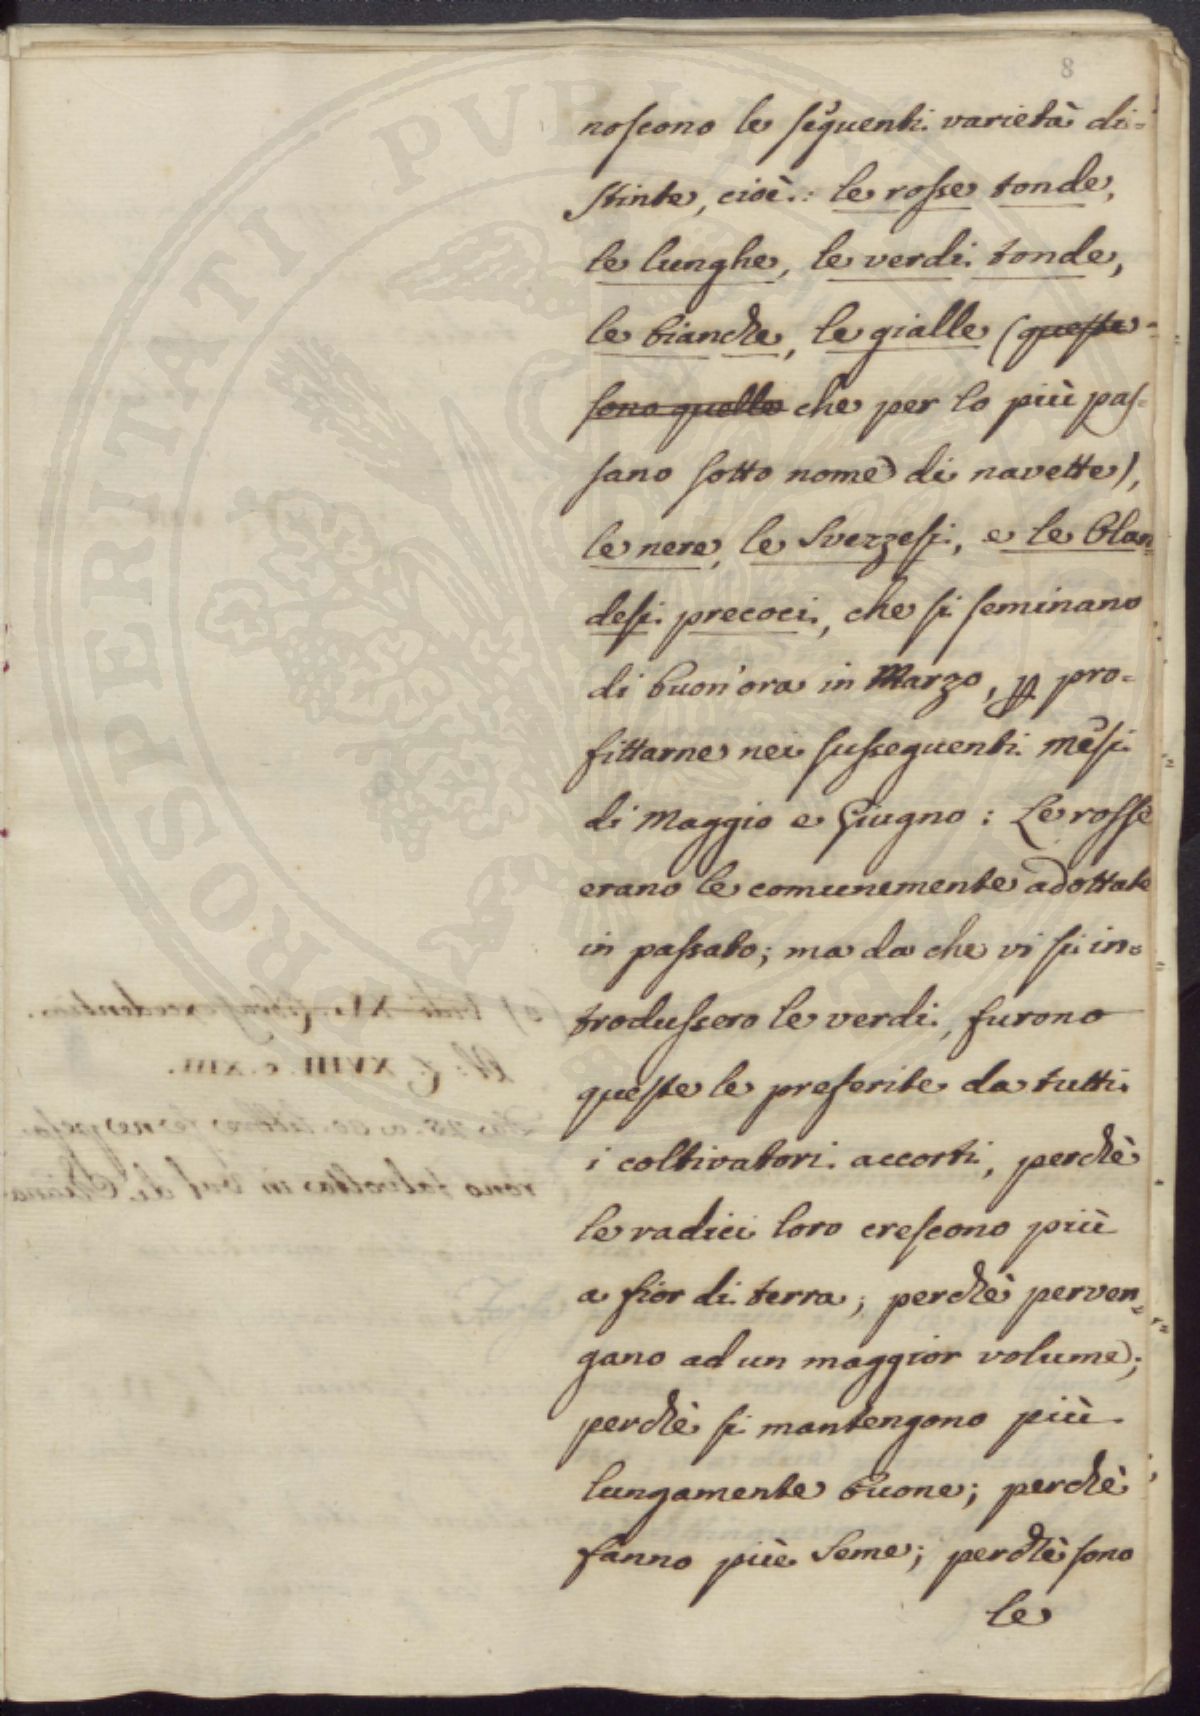 8
noscono le seguenti varietà di=
stinte, cioè: le rosse tonde,
le lunghe, le verdi tonde,
le bianche, le gialle (queste
sono quelle che per lo più pas=
sano sotto nome di navette),
le nere, le Svezzesi, e le Olan=
desi precoci, che si seminano
di buon'ora in Marzo, p pro=
fittarne nei susseguenti mesi
di Maggio e Giugno: Le rosse
erano le comunemente adottate
in passato; ma da che vi si in=
trodussero le verdi, furono
queste le preferite da tutti
i coltivatori accorti, perchè
le radici loro crescono più
a fior di terra; perchè perven=
gano ad un maggior volume;
perchè si mantengono più
lungamente buone; perchè
fanno più seme; perchè sono
le
PROSPERITATI PVBLI